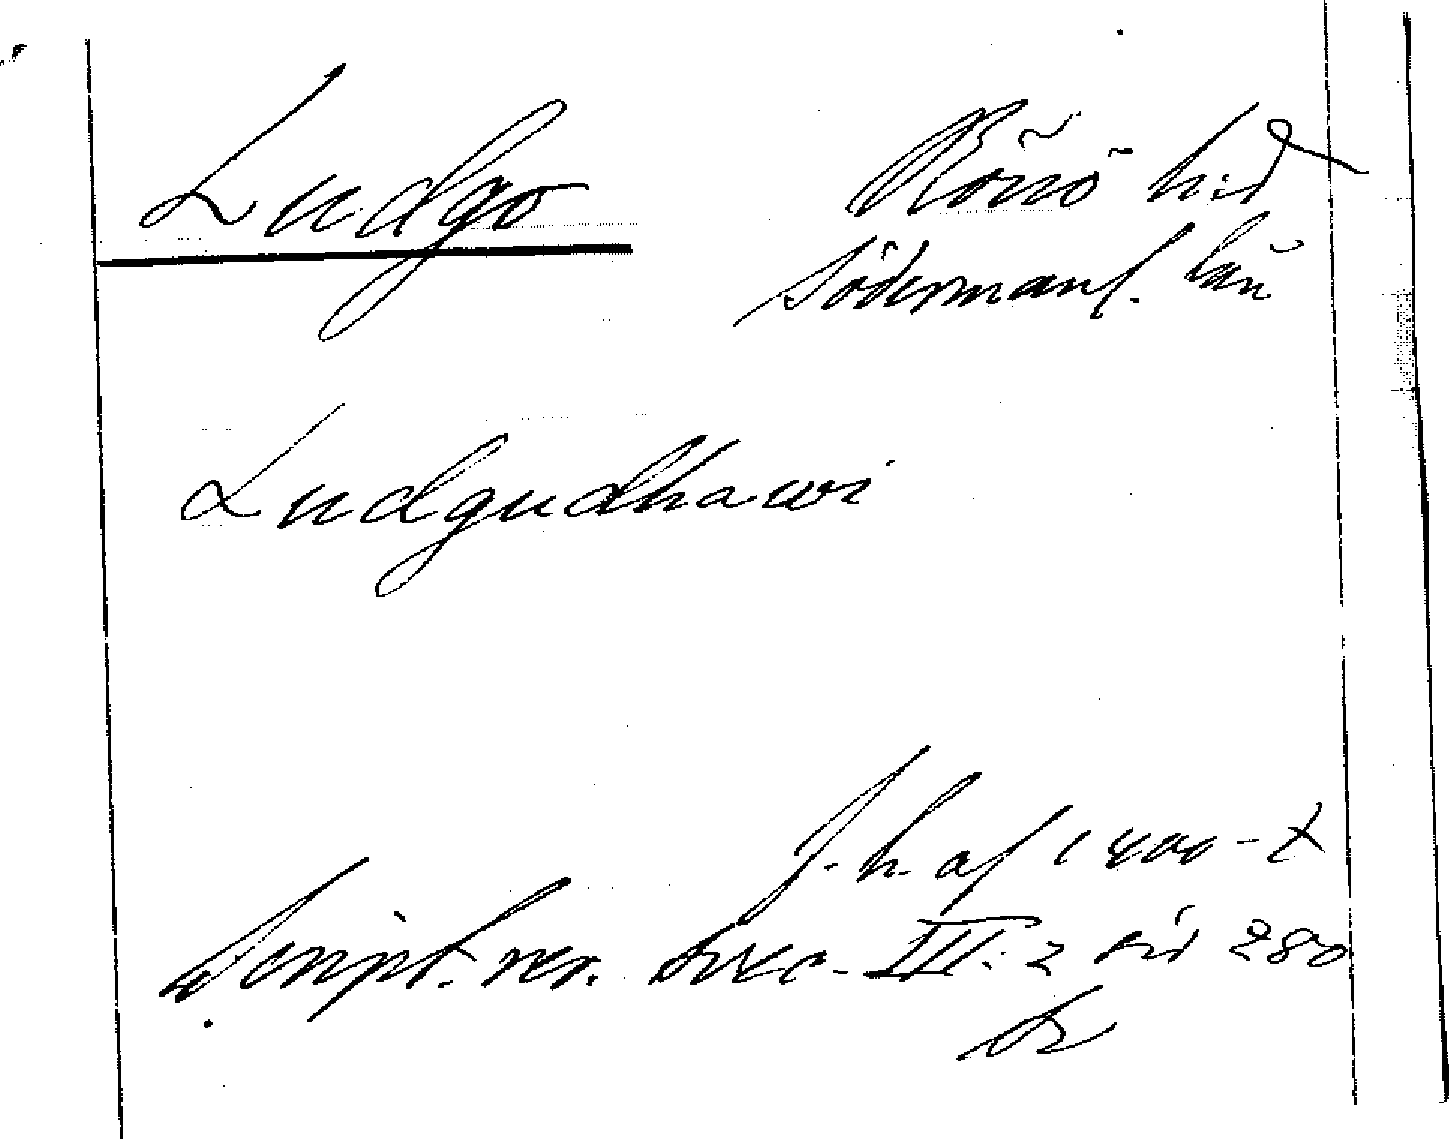 Ludgo Rönö hd
Södermanl. län
Ludgudhawi
f. h. af 1400-t
Script. rer. svec. III. 2 sid 280